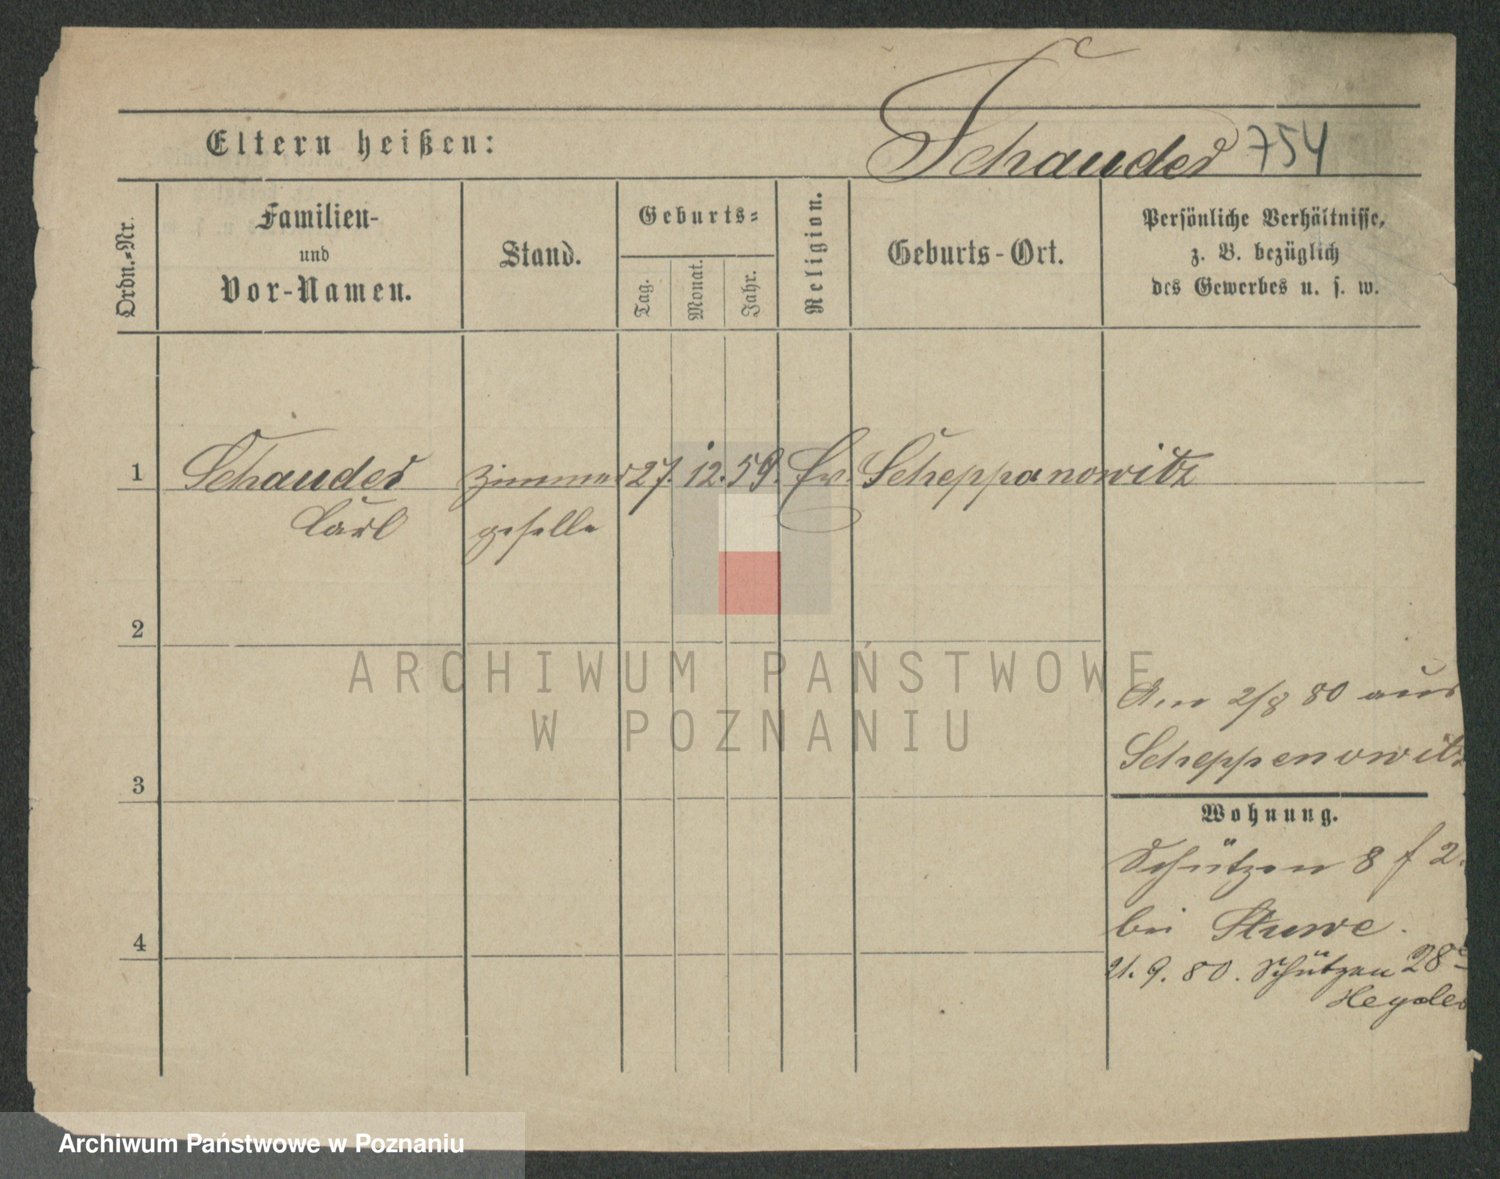 Schauder 754
Eltern heißen:
Ordn.-Nr.
Familien-
und
Vor-Namen.
Stand.
Geburts-
Tag.
Monat.
Jahr.
Religion.
Geburts-Ort.
Persönliche Verhältnisse,
z. B. bezüglich
des Gewerbes u. s. w.
1 Schauder Zimmer 27. 12. 59. Ev. Scheppanowitz
Carl geselle
2
ARCHIWUM PAŃSTWOWE
W POZNANIU
Am 2/8 80 aus
Scheppenowitz
3
Wohnung.
Schützen 8 f 2.
bei Stuwe.
4
21. 9. 80. Schützen 28a
Heyder
Archiwum Państwowe w Poznaniu